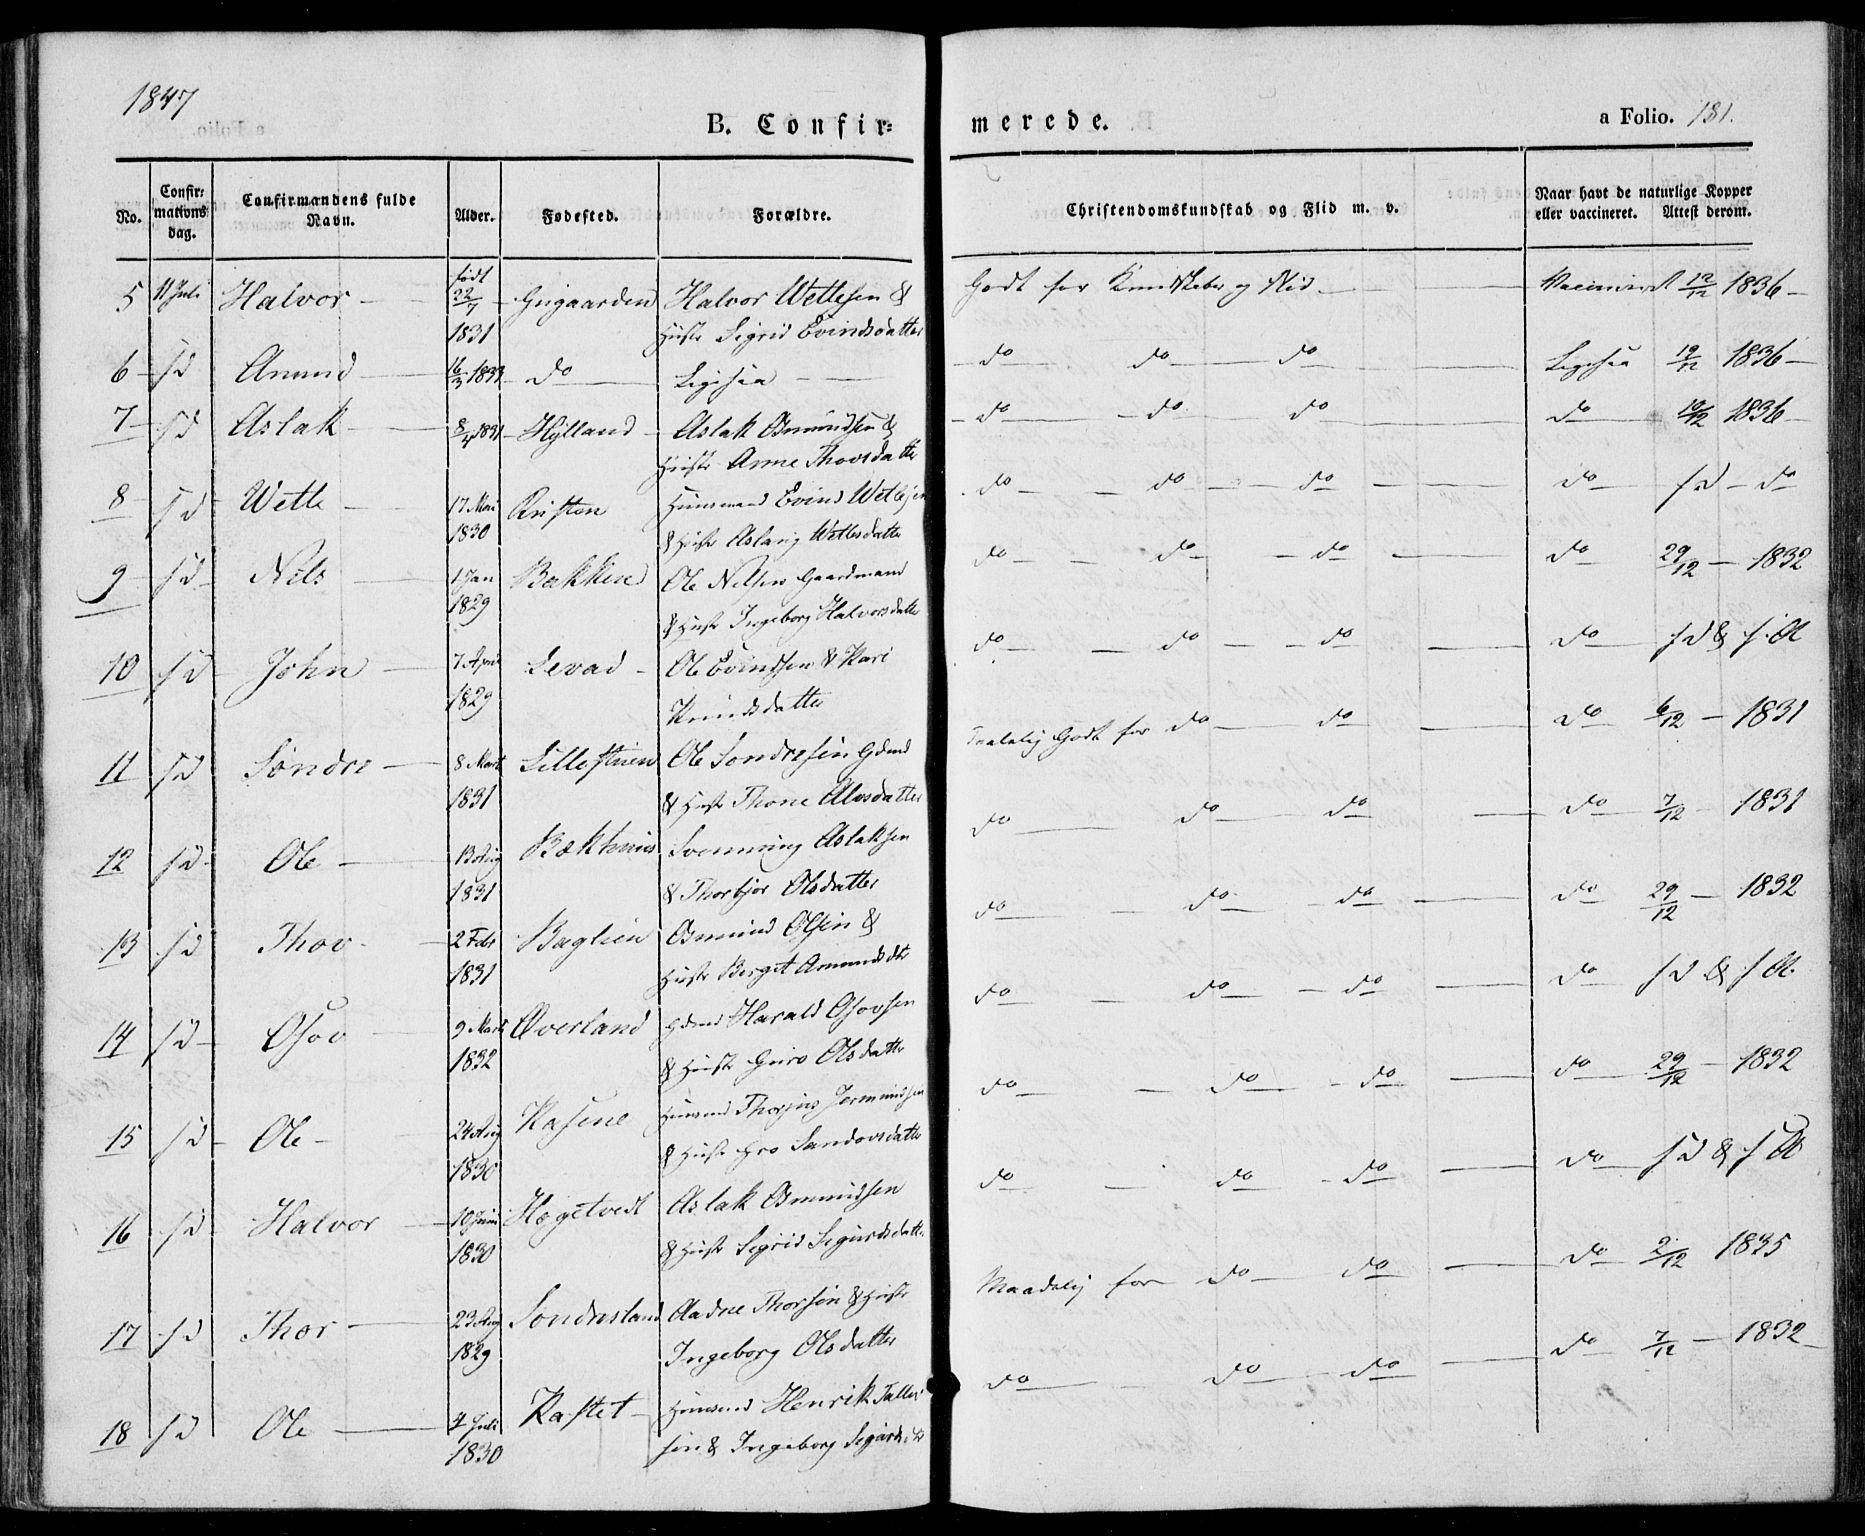 1847
B. Confir=
merede.
a Folio. 181.
No.
Confir=
mations
dag.
Confirmandens fulde
Navn.
Alder.
Fødested.
Forældre.
Christendomskundskab og Flid m. v.
Naar havt de naturlige Kopper
eller vaccineret. Attest derom.
5 11 Juli Halvor født 22/7 1831 Halvor Wettesen &
Hustr Sigrid Evindsdatter
Godt for Kundskaber og Flid 12/12 1836
6 sd Amund 16/3 1833 do Ligesaa
do do do Ligesaa 12/12 1836
7 sd Aslak 8/4 1831 Hylland Aslak Osmundsen &
Hustr Anne Thovsdatter
do do do do 12/12 1836
8 sd Wetle 17 Mai 1830 Huusmand Evind Wetlesen
& Hustr Aslaug Wetlesdatter
do do do do sd do
9 sd Nils 1 Jan 1829 Bakken Ole Nilsen Gaardmand
& Hustr Ingeborg Halvorsdatter
do do do do 29/12 1832
10 sd John 7 April 1829 Levad Ole Evindsen & Kari
Knudsdatter
do do do do sd & s A
11 sd Søndre 8 Marts 1831 Ole Sondresen Gdmd
& Hustr Thone Alvsdatter
Taalelig Godt for do do do 6/12 1831
12 sd Ole 13 Aug 1831 Bækhuus Svenning Aslaksen
& Thorbjør Olsdatter
do do do do 7/12 1831
13 sd Thov 2 Febr 1831 Baglien Osmund Olsen &
Hustr Berget Amundsdtr
do do do do 29/12 1832
14 sd Osov 9 Marts 1832 Øverland Gdmd Harald Osovsen
& Hustr Guro Olsdatter
do do do do sd & s A.
15 sd Ole 24 Aug 1830 Kasene Huusmd Jermundsen
& Hustr Gro Sandovsdatter
do do do do 29/12 1832
16 sd Halvor 10 Juni 1830 Høgetvedt Aslak Osmundsen
& Hustr Sigrid Sigurdsdatter
do do do do sd & s A
17 sd Thor 23 Aug 1829 Sondresland Aadne Thorsen & Hustr
Ingeborg Olsdatter
Maadelig for do do do 2/12 1835
18 sd Ole 4 Juli 1830 Kastet Huusmd Henrik Tallev
sen & Ingeborg Sigurdsdtr
do do do do 7/12 1832